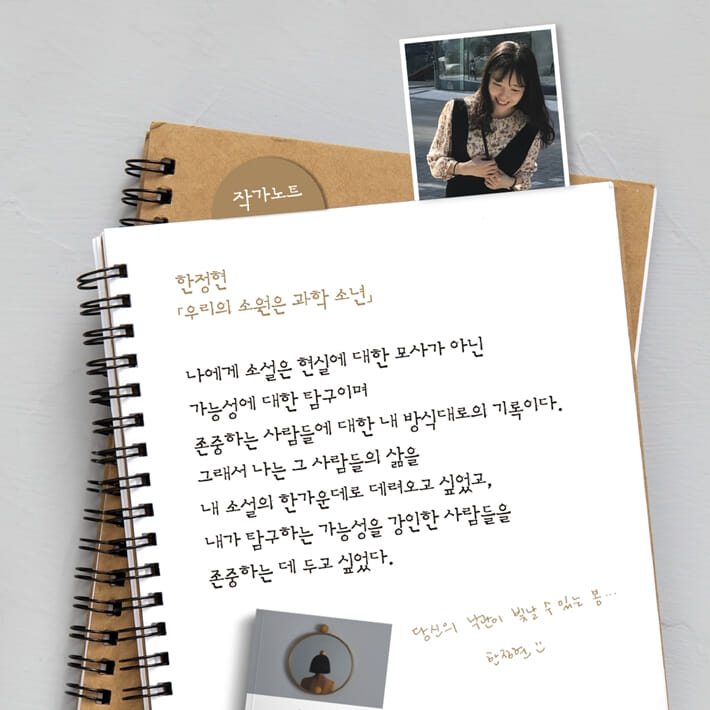 작가노트
한정현
「우리의 소원은 과학 소년」
나에게 소설은 현실에 대한 모사가 아닌
가능성에 대한 탐구이며
존중하는 사람들에 대한 내 방식대로의 기록이다.
그래서 나는 그 사람들의 삶을
내 소설의 한가운데로 데려오고 싶었고,
내가 탐구하는 가능성을 강인한 사람들을
존중하는 데 두고 싶었다.
당신의 낙관이 빛날 수 있는 봄...
한정현